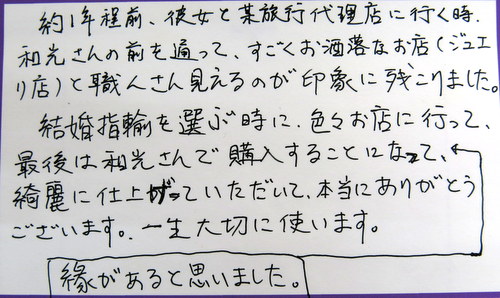 約1年程前、彼女と某旅行代理店に行く時、
和光さんの前を通って、すごくお洒落なお店(ジュエ
リ店)と職人さん見えるのが印象に残こりました。
結婚指輪を選ぶ時に、色々お店に行って、
最後は和光さんで購入することになって、
綺麗に仕上がっていただいて、本当にありがとう
ございます。一生大切に使います。
縁があると思いました。